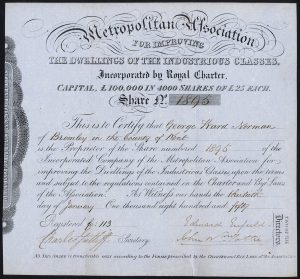 Metropolitan Association
FOR IMPROVING
THE DWELLINGS OF THE INDUSTRIOUS CLASSES.
Incorporated by Royal Charter.
CAPITAL, £100,000 IN 4000 SHARES OF £25 EACH.
Share No. 1895
This is to Certify that George Ward Norman
of Bromley in the County of Kent
is the Proprietor of the Share numbered 1895 of the
Incorporated Company of the Metropolitan Association for
improving the Dwellings of the Industrious Classes upon the terms
and subject to the regulations contained in the Charter and Bye Laws
of the Association. As Witness our hands the
day of January One thousand eight hundred and fifty
Registered fo. 113
Charles Secretary
Directors.